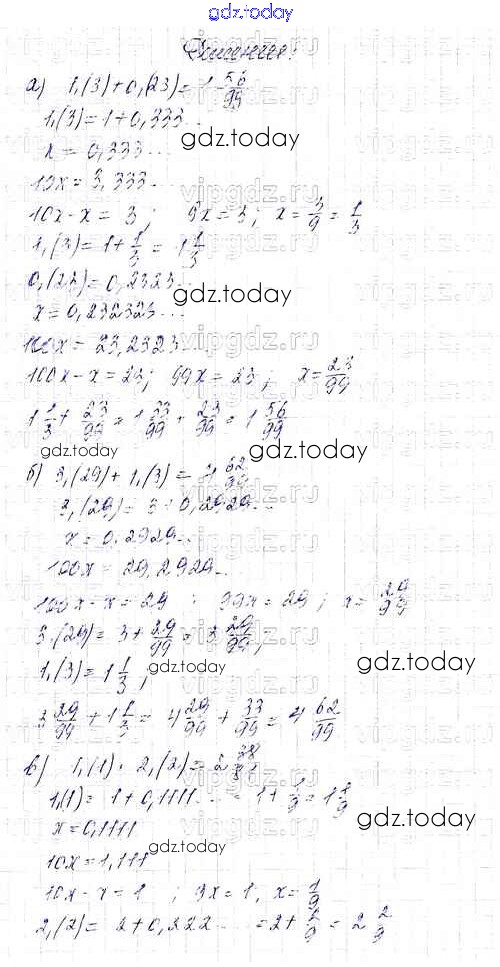 gdz.today
Решение:
а) 1,(3)+0,(23)=1 56/99
1,(3)=1+0,333...
gdz.today
x=0,333...
10x=3,333...
10x-x=3; 9x=3; x=3/9=1/3
1,(3)=1+1/3=1 1/3
0,(23)=0,2323...
gdz.today
x=0,232323...
100x=23,2323...
100x-x=23; 99x=23; x=23/99
1 1/3+23/99=1 33/99+23/99=1 56/99
gdz.today gdz.today
б) 3,(29)+1,(3)=4 62/99
3,(29)=3+0,2929...
x=0,2929...
gdz.today
100x=29,2929...
100x-x=29; 99x=29; x=29/99
3,(29)=3+29/99=3 29/99;
1,(3)=1 1/3;
gdz.today gdz.today
3 29/99+1 1/3=4 29/99+33/99=4 62/99
в) 1,(1)·2,(2)=2 38/81
1,(1)=1+0,1111...=1+1/9=1 1/9
x=0,1111
gdz.today
10x=1,111
gdz.today
10x-x=1; 9x=1, x=1/9
2,(2)=2+0,222...=2+2/9=2 2/9
gdz.today
vipgdz.ru